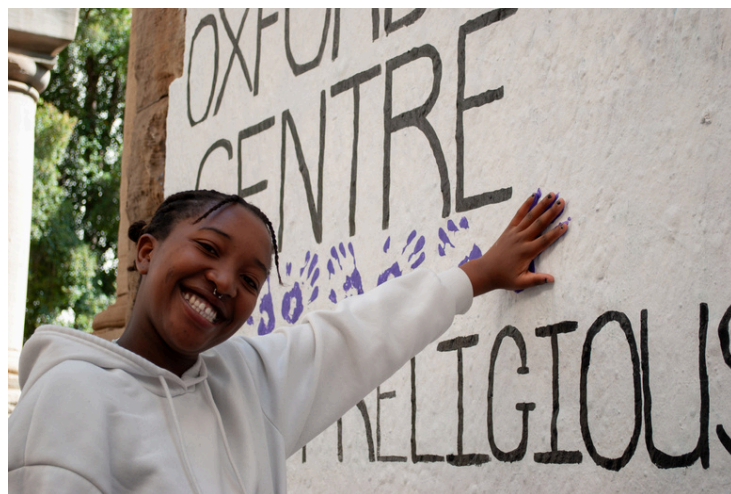 OXFORD
CENTRE
RELIGIOUS